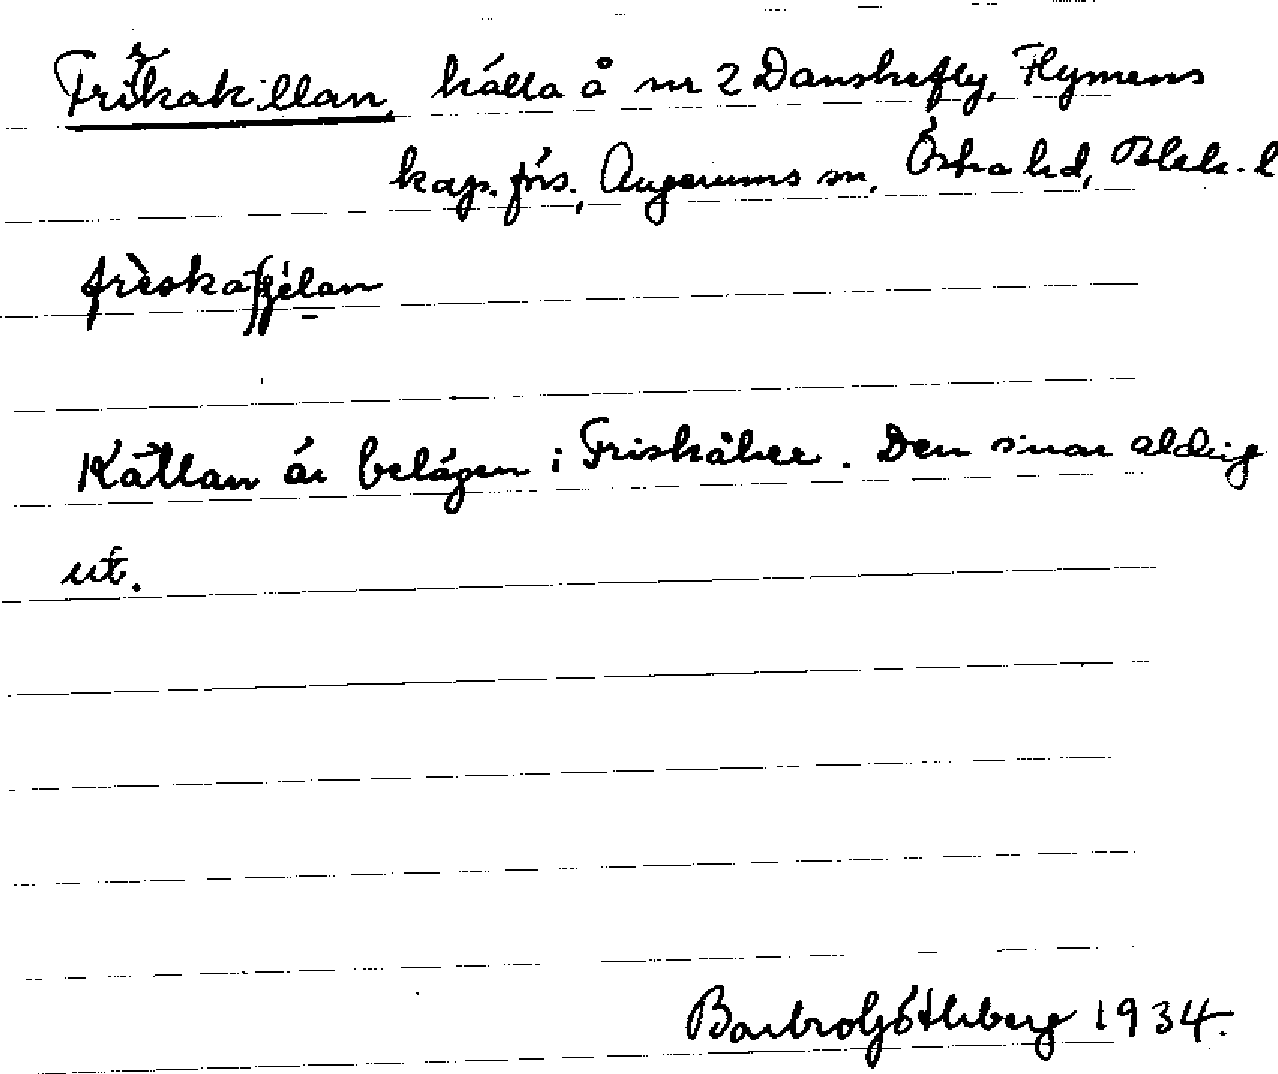 Friskakillan, källa å nr 2 Danskefly, Flymens
kap. förs., Augerums sn, Östra hd, Blek. l
Källan är belägen i Friskåker. Den sinar aldrig
ut.
Barbro Göthberg 1934.